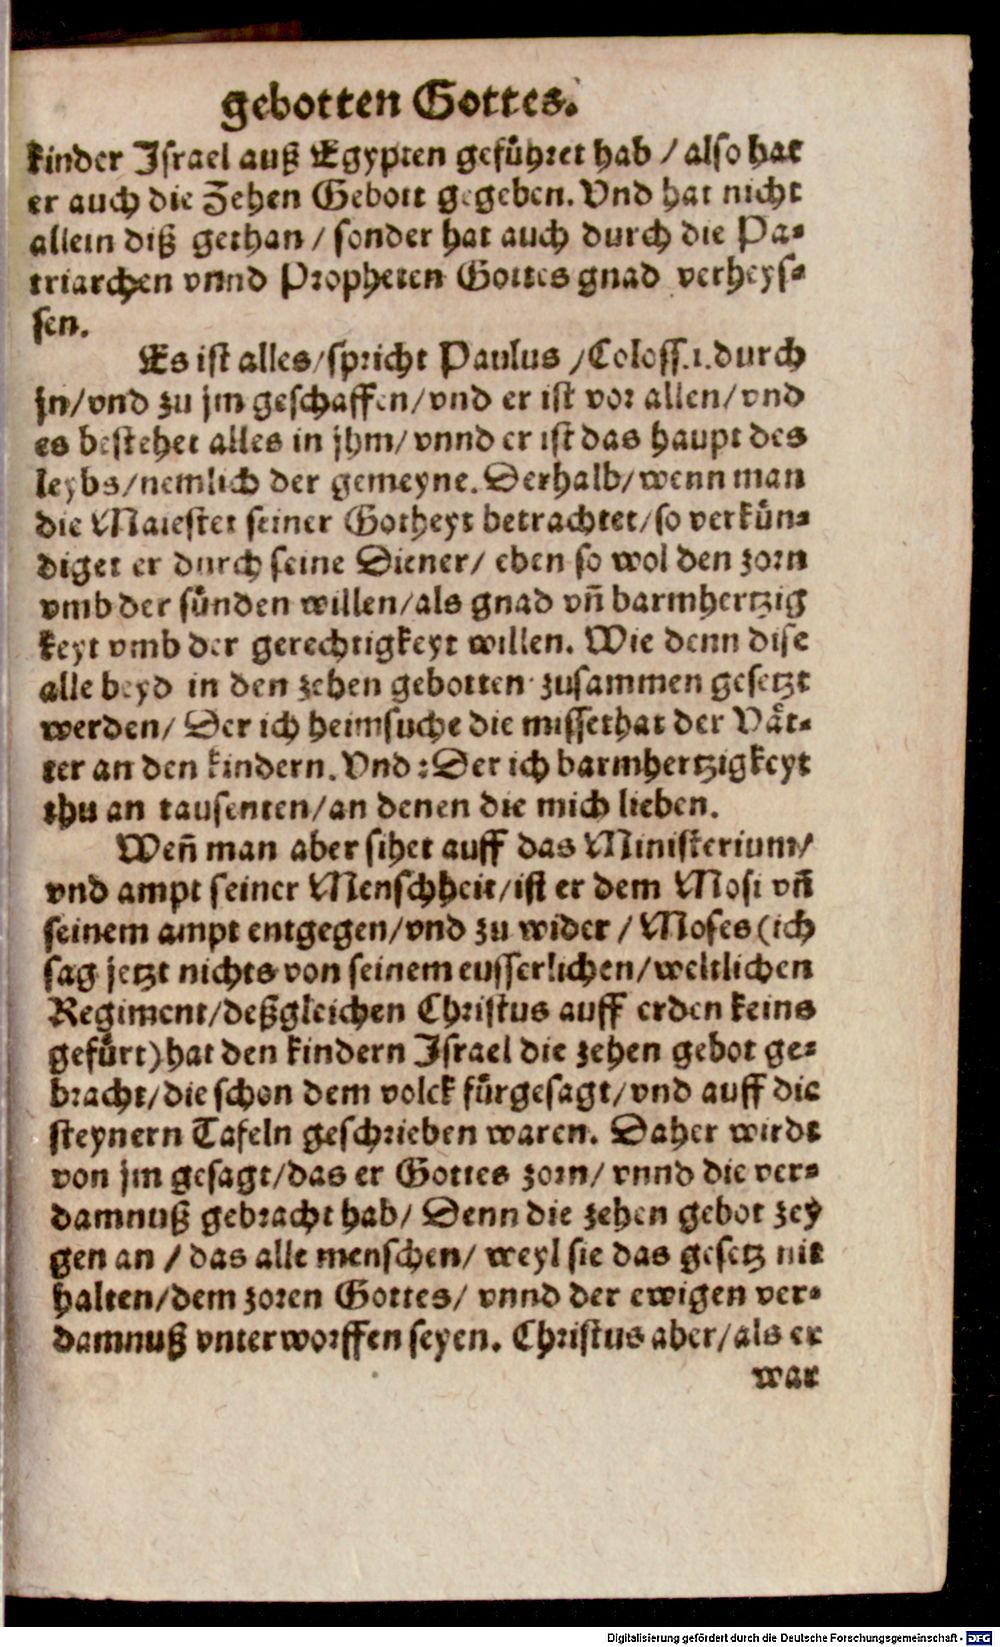 gebotten Gottes.
kinder Israel auß Egypten gefůhret hab / also hat
er auch die Zehen Gebott gegeben. Vnd hat nicht
allein diß gethan / sonder hat auch durch die Pa-
triarchen vnnd Propheten Gottes gnad verheys-
sen.
Es ist alles/spricht Paulus /Coloss.1.durch
jn/vnd zu jm geschaffen/vnd er ist vor allen/vnd
es bestehet alles in jhm/vnnd er ist das haupt des
leybs/nemlich der gemeyne. Derhalb/wenn man
die Maiestet seiner Gotheyt betrachtet/so verkün-
diget er durch seine Diener/ eben so wol den zorn
vmb der sünden willen/als gnad vñ barmhertzig
keyt vmb der gerechtigkeyt willen. Wie denn dise
alle beyd in den zehen gebotten zusammen gesetzt
werden/ Der ich heimsuche die missethat der Vät-
ter an den kindern. Vnd: Der ich barmhertzigkeyt
thu an tausenten/an denen die mich lieben.
Weñ man aber sihet auff das Ministerium/
vnd ampt seiner Menschheit/ist er dem Mosi vñ
seinem ampt entgegen/vnd zu wider / Moses (ich
sag jetzt nichts von seinem eusserlichen/weltlichen
Regiment/deßgleichen Christus auff erden keins
gefürt) hat den kindern Israel die zehen gebot ge-
bracht/die schon dem volck fürgesagt/vnd auff die
steynern Tafeln geschrieben waren. Daher wirdt
von jm gesagt/das er Gottes zorn/ vnnd die ver-
damnuß gebracht hab/ Denn die zehen gebot zey
gen an / das alle menschen/ weyl sie das gesetz nit
halten/dem zoren Gottes/ vnnd der ewigen ver-
damnuß vnterworffen seyen. Christus aber/als er
war
Digitalisierung gefördert durch die Deutsche Forschungsgemeinschaft - DFG